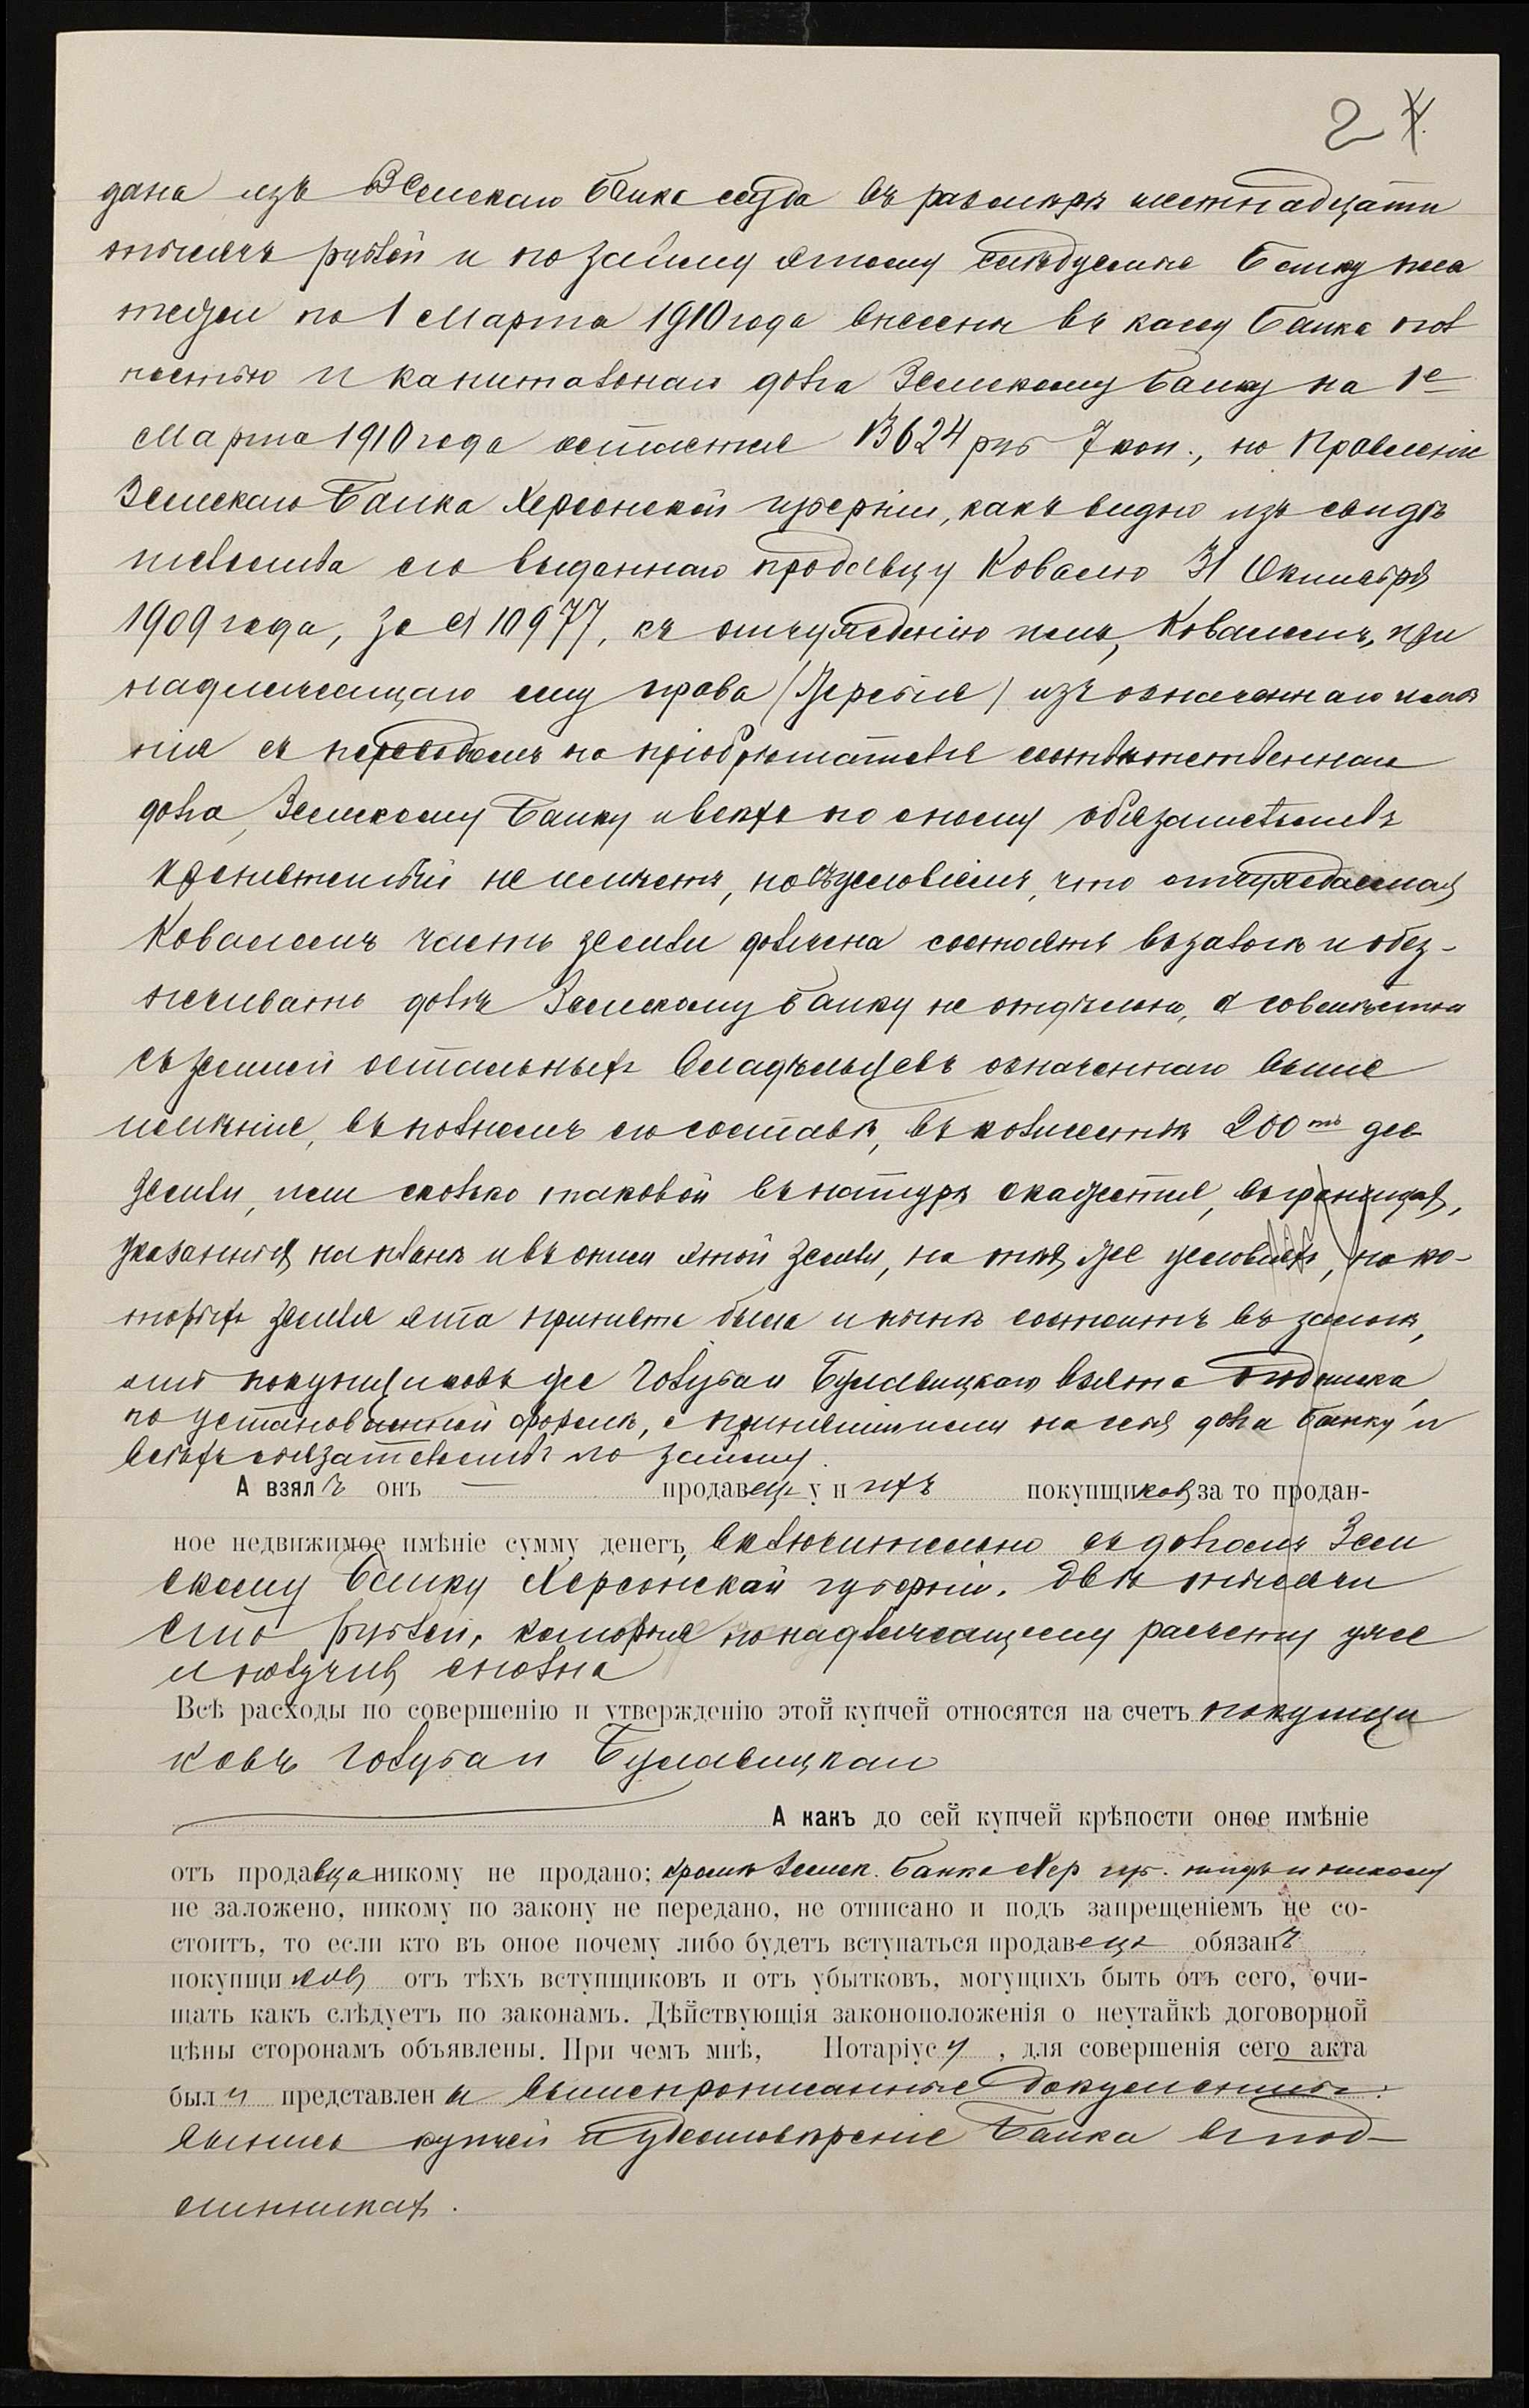 24
дана изъ Земскаго Банка ссуда въ размѣрѣ шестнадцати
тысячъ рублей и по займу этому слѣдуемые Банку пла
тежи по 1 Марта 1910 года внесены въ кассу Банка пол
ностью и капитальнаго долга Земскому Банку на 1е
Марта 1910 года остается 13624 руб 7 коп., но Правленіе
Земскаго Банка Херсонской губерніи, какъ видно изъ свидѣ
тельства его выданнаго продавцу Ковалю 31 Октября
1909 года, за № 10977, къ отчужденію имъ, Ковалемъ, при
надлежащаго ему права (жеребія) изъ означеннаго имѣ
нія съ переводомъ на пріобрѣтателя соотвѣтственнаго
долга, Земскому Банку и всѣхъ по оному обязательствъ
препятствій не имѣетъ, но съ условіемъ, что отчуждаемая
Ковалемъ часть земли должна состоять въ залогѣ и обез-
печивать долгъ Земскому Банку не отдѣльно, а совмѣстно
съ землей остальныхъ владѣльцевъ означеннаго выше
имѣнія, въ полномъ его составѣ, въ количествѣ 200тъ дес
земли, или сколько таковой въ натурѣ окажется, въ границахъ,
указанныхъ на планѣ и въ описи этой земли, на тѣхъ же условіяхъ, на ко-
торыхъ земля эта принята была и нынѣ состоитъ въ залогѣ,
отъ покупщиковъ же Голубан и Булавицкаго взята подписка
по установленной формѣ, о принятіи ими на себя долга Банку и
всѣхъ обязательствъ по займу.
А взялъ онъ — продавецъ у нихъ покупщиковъ за то продан-
ное недвижимое имѣніе сумму денегъ, включительно съ долгомъ Зем
скому Банку Херсонской губерніи. Двѣ тысячи
сто рублей, которые по надлежащему расчету уже
и получилъ сполна
Всѣ расходы по совершенію и утвержденію этой купчей относятся на счетъ покупщи
ковъ Голубан и Булавицкаго
А какъ до сей купчей крѣпости оное имѣніе
отъ продавца никому не продано; кромѣ Земск. Банка Хер губ. нигдѣ и никому
не заложено, никому по закону не передано, не отписано и подъ запрещеніемъ не со-
стоитъ, то если кто въ оное почему либо будетъ вступаться продавецъ обязанъ
покупщиковъ отъ тѣхъ вступщиковъ и отъ убытковъ, могущихъ быть отъ сего, очи-
щать какъ слѣдуетъ по законамъ. Дѣйствующія законоположенія о неутайкѣ договорной
цѣны сторонамъ объявлены. При чемъ мнѣ, Нотаріусу, для совершенія сего акта
были представлены вышепрописанные документы:
выпись купчей и удостовѣреніе Банка въ под-
линникахъ.